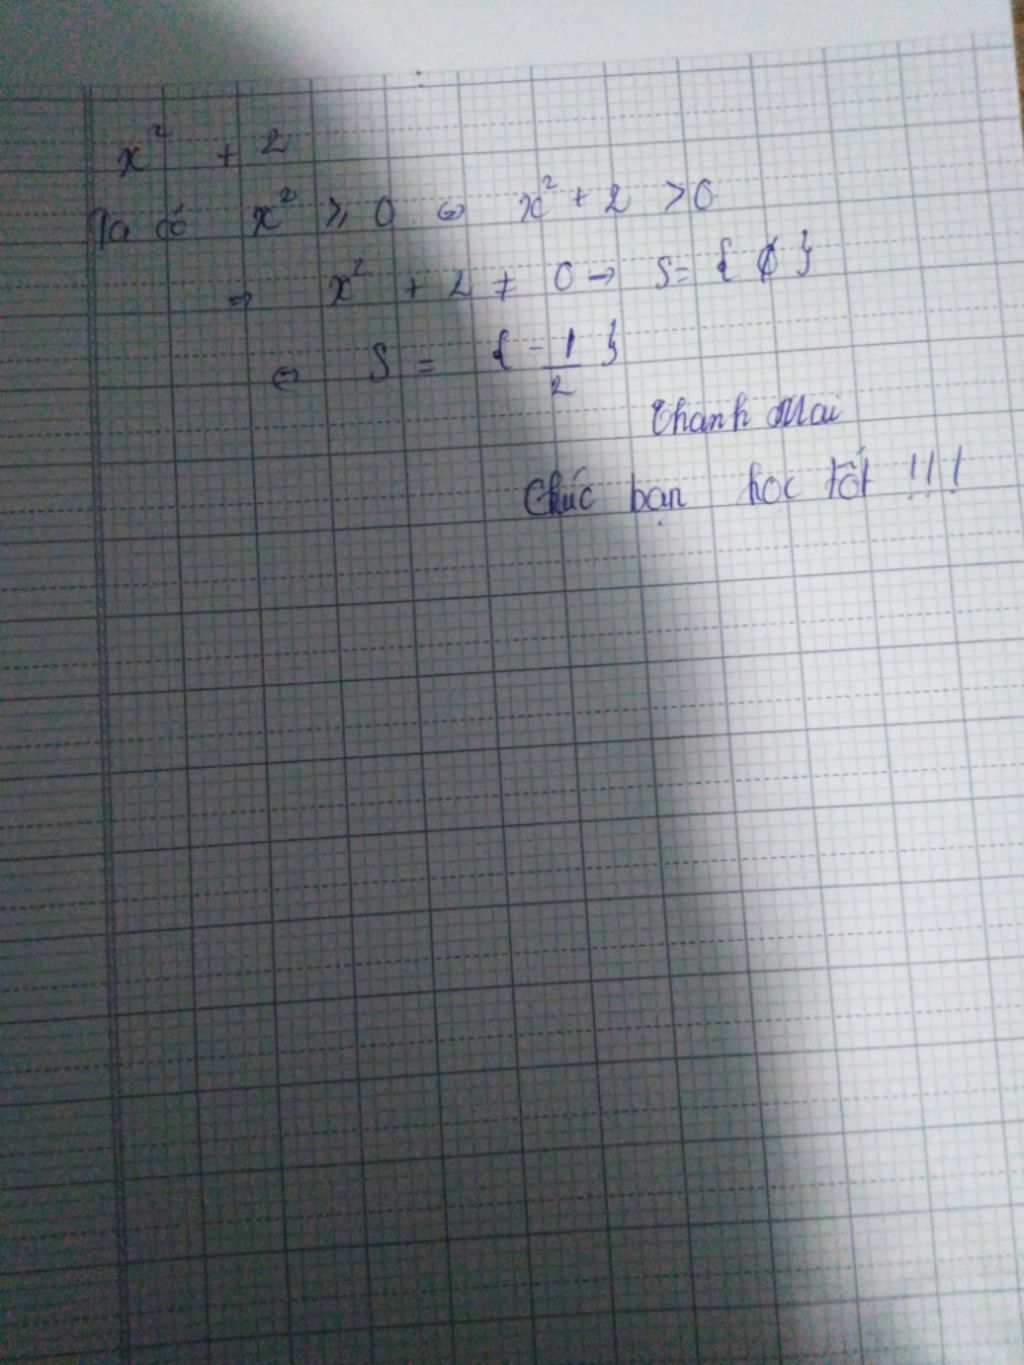 x² + 2
Ta có x² ⩾ 0 ⇔ x² + 2 > 0
⇒ x² + 2 ≠ 0 → S = { ∅ }
⇔ S = { -1/2 }
Thanh Mai
Chúc bạn học tốt !!!